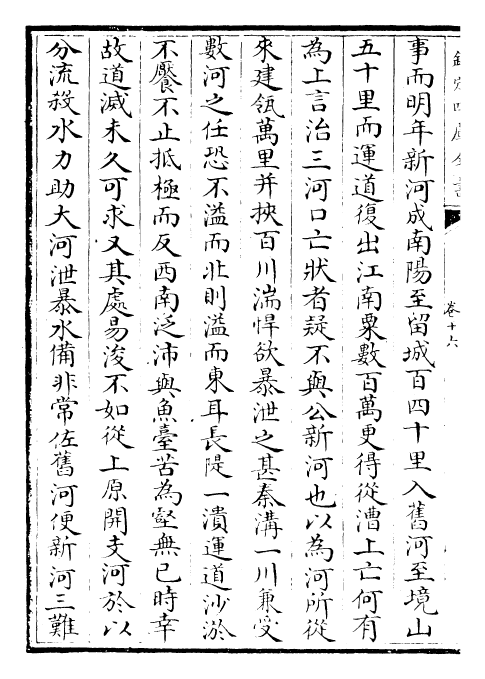 欽定四庫全書
卷十六
事而明年新河成南陽至留城百四十里入舊河至境山
五十里而運道復出江南粟數百萬更得從漕上亡何有
為上言治三河口亡狀者疑不與公新河也以為河所從
來建瓴萬里并挾百川湍悍欲暴泄之甚秦溝一川兼受
數河之任恐不溢而北則溢而東耳長隄一潰運道沙淤
不饜不止抵極而反西南泛沛與魚臺苦為壑無已時幸
故道滅未久可求又其處易浚不如從上原開支河於以
分流殺水力助大河泄暴水備非常佐舊河便新河三難